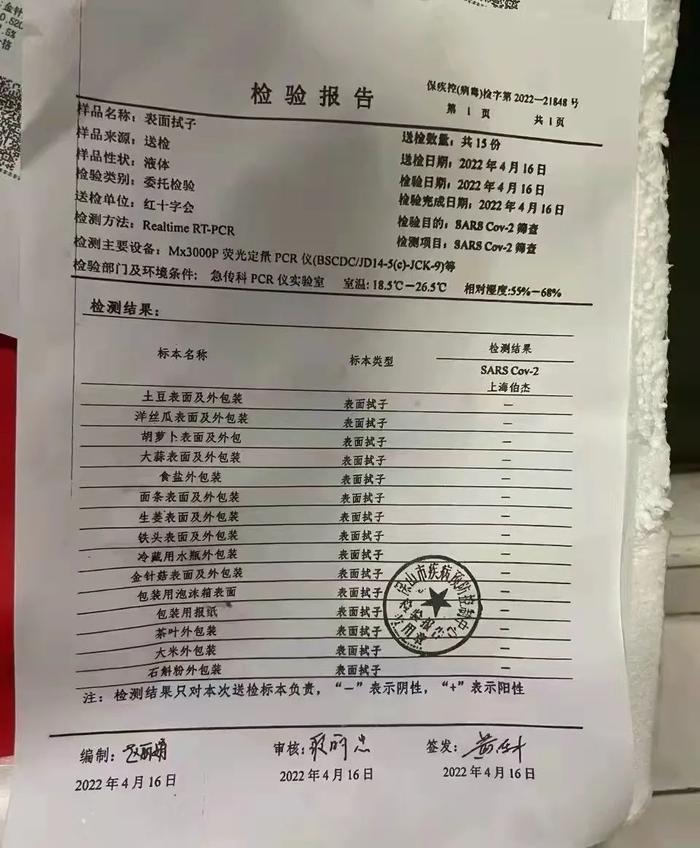 金针
检验报告
保疾控(病毒)检字第 2022-21848 号
第 1 页 共 1 页
样品名称：表面拭子
样品来源：送检 送检数量：共 15 份
样品性状：液体 送检日期：2022 年 4 月 16 日
检验类别：委托检验 检验日期：2022 年 4 月 16 日
送检单位：红十字会 检验完成日期：2022 年 4 月 16 日
检测方法：Realtime RT-PCR 检验目的：SARS Cov-2 筛查
检测项目：SARS Cov-2 筛查
检测主要设备：Mx3000P 荧光定量 PCR 仪(BSCDC/JD14-5(c)-JCK-9)等
检验部门及环境条件：急传科 PCR 仪实验室 室温：18.5℃－26.5℃ 相对湿度：55%－68%
检测结果：
标本名称 标本类型 检测结果
SARS Cov-2
上海伯杰
土豆表面及外包装 表面拭子 －
洋丝瓜表面及外包装 表面拭子 －
胡萝卜表面及外包 表面拭子 －
大蒜表面及外包装 表面拭子 －
食盐外包装 表面拭子 －
面条表面及外包装 表面拭子 －
生姜表面及外包装 表面拭子 －
铁头表面及外包装 表面拭子 －
冷藏用水瓶外包装 表面拭子 －
金针菇表面及外包装 表面拭子
包装用泡沫箱表面 表面拭子
包装用报纸 表面拭子
茶叶外包装 表面拭子 －
大米外包装 表面拭子 －
石斛粉外包装 表面拭子 －
山市疾病预防控制中心
检验报告
专用章
注：检测结果只对本次送检标本负责，“－”表示阴性，“+”表示阳性
编制： 审核： 签发：
2022 年 4 月 16 日 2022 年 4 月 16 日 2022 年 4 月 16 日